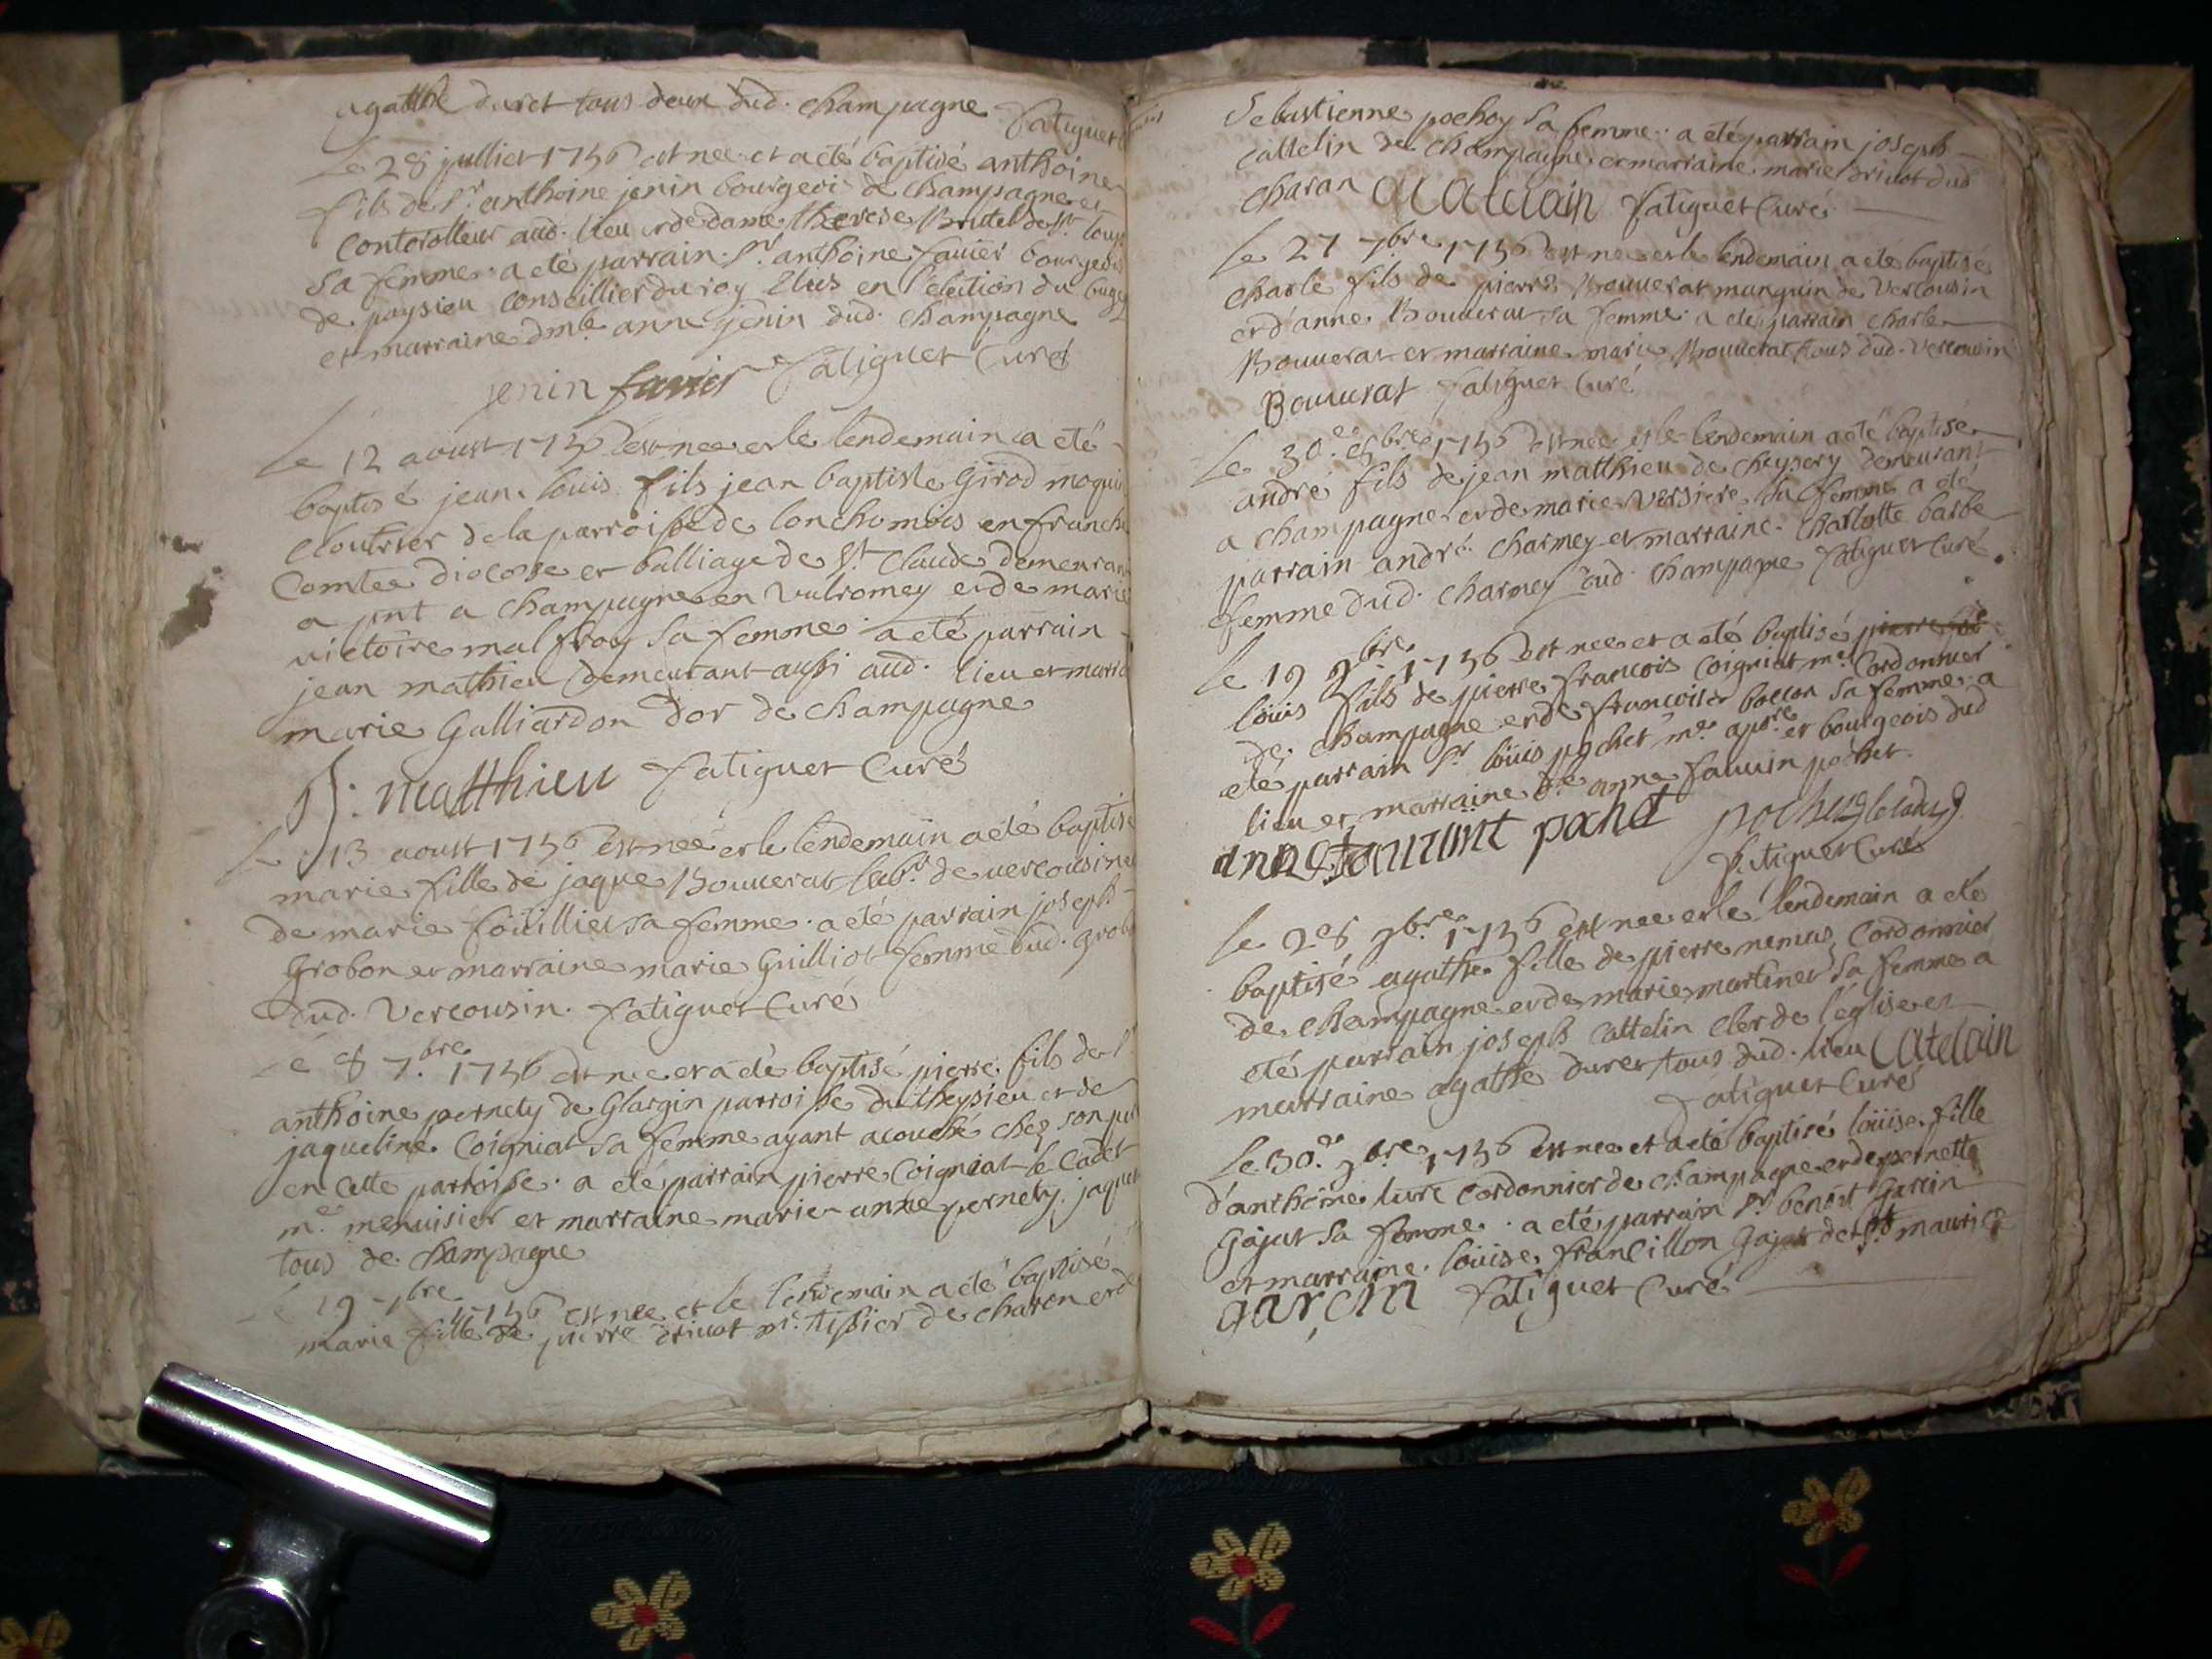 agathe duret tous deux dud. Champagne fatiguet
Le 28 julliet 1736 est nee et a eté baptisé anthoine
fils de Sr. anthoine jenin bourgeois de Champagne et
Controlleur aud. lieu et de dame therese Brillet de St.
sa femme. a eté parrain. Sr. anthoine favier bourgeois
de poysieu conseillier du roy Elus en l'election du bugey
et marraine dmle. anne jenin dud. Champagne
jenin favier fatiguet Curé
Le 12 aoust 1736 est nee et le lendemain a eté
baptisé jean. louis fils jean baptiste Girod moquin
Cloutrier de la parroisse de lonchomois en franche
Comtee diocose et balliage de St. Claude demeurant
a pnt a Champagne en Valromey et de marie
victoire malfroy sa femme. a eté parrain
jean mathieu demeurant aussi aud. lieu et marra
marie Galliardon d'or de Champagne
J: matthieu fatiguet Curé
Le 13 aoust 1736 est neé et le lendemain a eté baptisé
marie fille de jaque Bouverat labr. de vercousin et
de marie foüillier sa femme. a eté parrain joseph
Grobon et marraine marie Guilliot femme dud. grobon
dud. Vercousin. fatiguet Curé
Le 8 7.bre 1736 est nee et a eté baptisé pierre. fils de
anthoine pernety de Glargin parroisse du theysieu et de
jaqueline. Coigniat sa femme ayant acouché chez son
en cette parroisse. a eté parrain pierre Coigniat le Cadet
me. menuisier et marraine marie-anne pernety. jaquet
tous de. Champagne
Le 19 7bre 1736 est nee et le lendemain a eté baptisé
marie fille de pierre drivot me. tissier de charon et de
Sebastienne pochoy sa femme. a eté parrain joseph
Cattelin de Champagne et marraine. marie drivot dud
charan Catelain fatiguet Curé
Le 27 7.bre 1736 est nee et le lendemain a eté baptisé
Charle fils de pierre Bouverat manguin de Vercousin
et d'anne. Bouverat sa femme. a eté parrain Charle
Bouverat et marraine. marie Bouverat tous dud. Vercousin
Bouverat fatiguet Curé
Le 30.e 8bre 1736 est nee et le lendemain a eté baptise
andré fils de jean matthieu de cheysery demeurant
a Champagne et de marie versiere sa femme a eté
parrain andré. Charmey et marraine. Charlotte barbe
femme dud. Charmey dud. Champagne fatiguet Curé
Le 19 9bre. 1736 est nee et a eté baptisé
loüis fils de pierre francois Coigniat me. Cordonnier
de. Champagne et de francoise bolon sa femme. a
eté parrain Sr. loüis pochet me. apore. et bourgeois dud
lieu et marraine anne fauvin pochet.
anne fauvint pochet pochet
fatiguet Curé
Le 28 9bre. 1736 est nee et le lendemain a eté
baptisé agathe fille de pierre nemus Cordonnier
de Champagne et de marie martinet sa femme a
eté parrain joseph Cattelin Cler de l'église et
marraine agathe duret tous dud. lieu Catelain
fatiguet Curé
Le 30.e 9bre. 1736 est nee et a eté baptisé loüise. fille
d'anthoine. lure Cordonnier de Champagne et de pernette
Gajat sa femme. a eté parrain Sr benoit Garcin
et marraine. loüise. francillon Gajat de St maurice
garcin fatiguet Curé